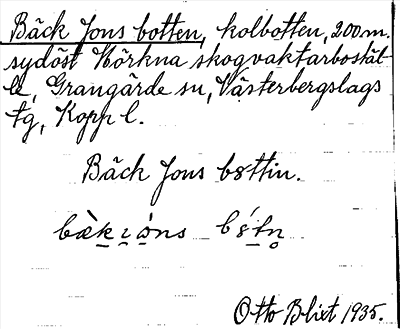 Bäck Jons botten, kolbotten, 200 m.
sydöst Hörkna skogvaktarbostäl-
le, Grangärde sn, Västerbergslags
tg, Kopp l.
Bäck Jons bottin.
Otto Blixt 1935.